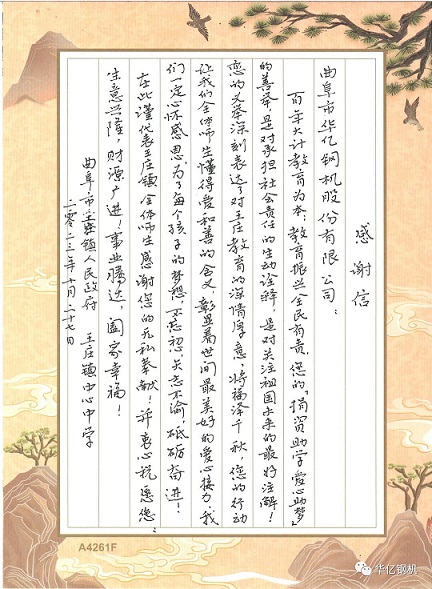 感谢信
曲阜市华亿钢机股份有限公司：
百年大计教育为本；教育振兴全民有责，您的"捐资助学爱心助梦"
的善举，是对承担社会责任的生动诠释，是对关注祖国未来的最好注解！
您的义举深刻表达了对王庄教育的深情厚意，将福泽千秋，您的行动
让我们全体师生懂得爱和善的含义，彰显着世间最美好的爱心接力，我
们一定心怀感恩，为了每个孩子的梦想，不忘初心，矢志不渝，砥砺奋进！
在此谨代表王庄镇全体师生感谢您的无私奉献！并衷心祝愿您：
生意兴隆，财源广进！事业腾达，阖家幸福！
曲阜市王庄镇人民政府 王庄镇中心中学
二零二三年十月二十七日
A4261F
华亿钢机